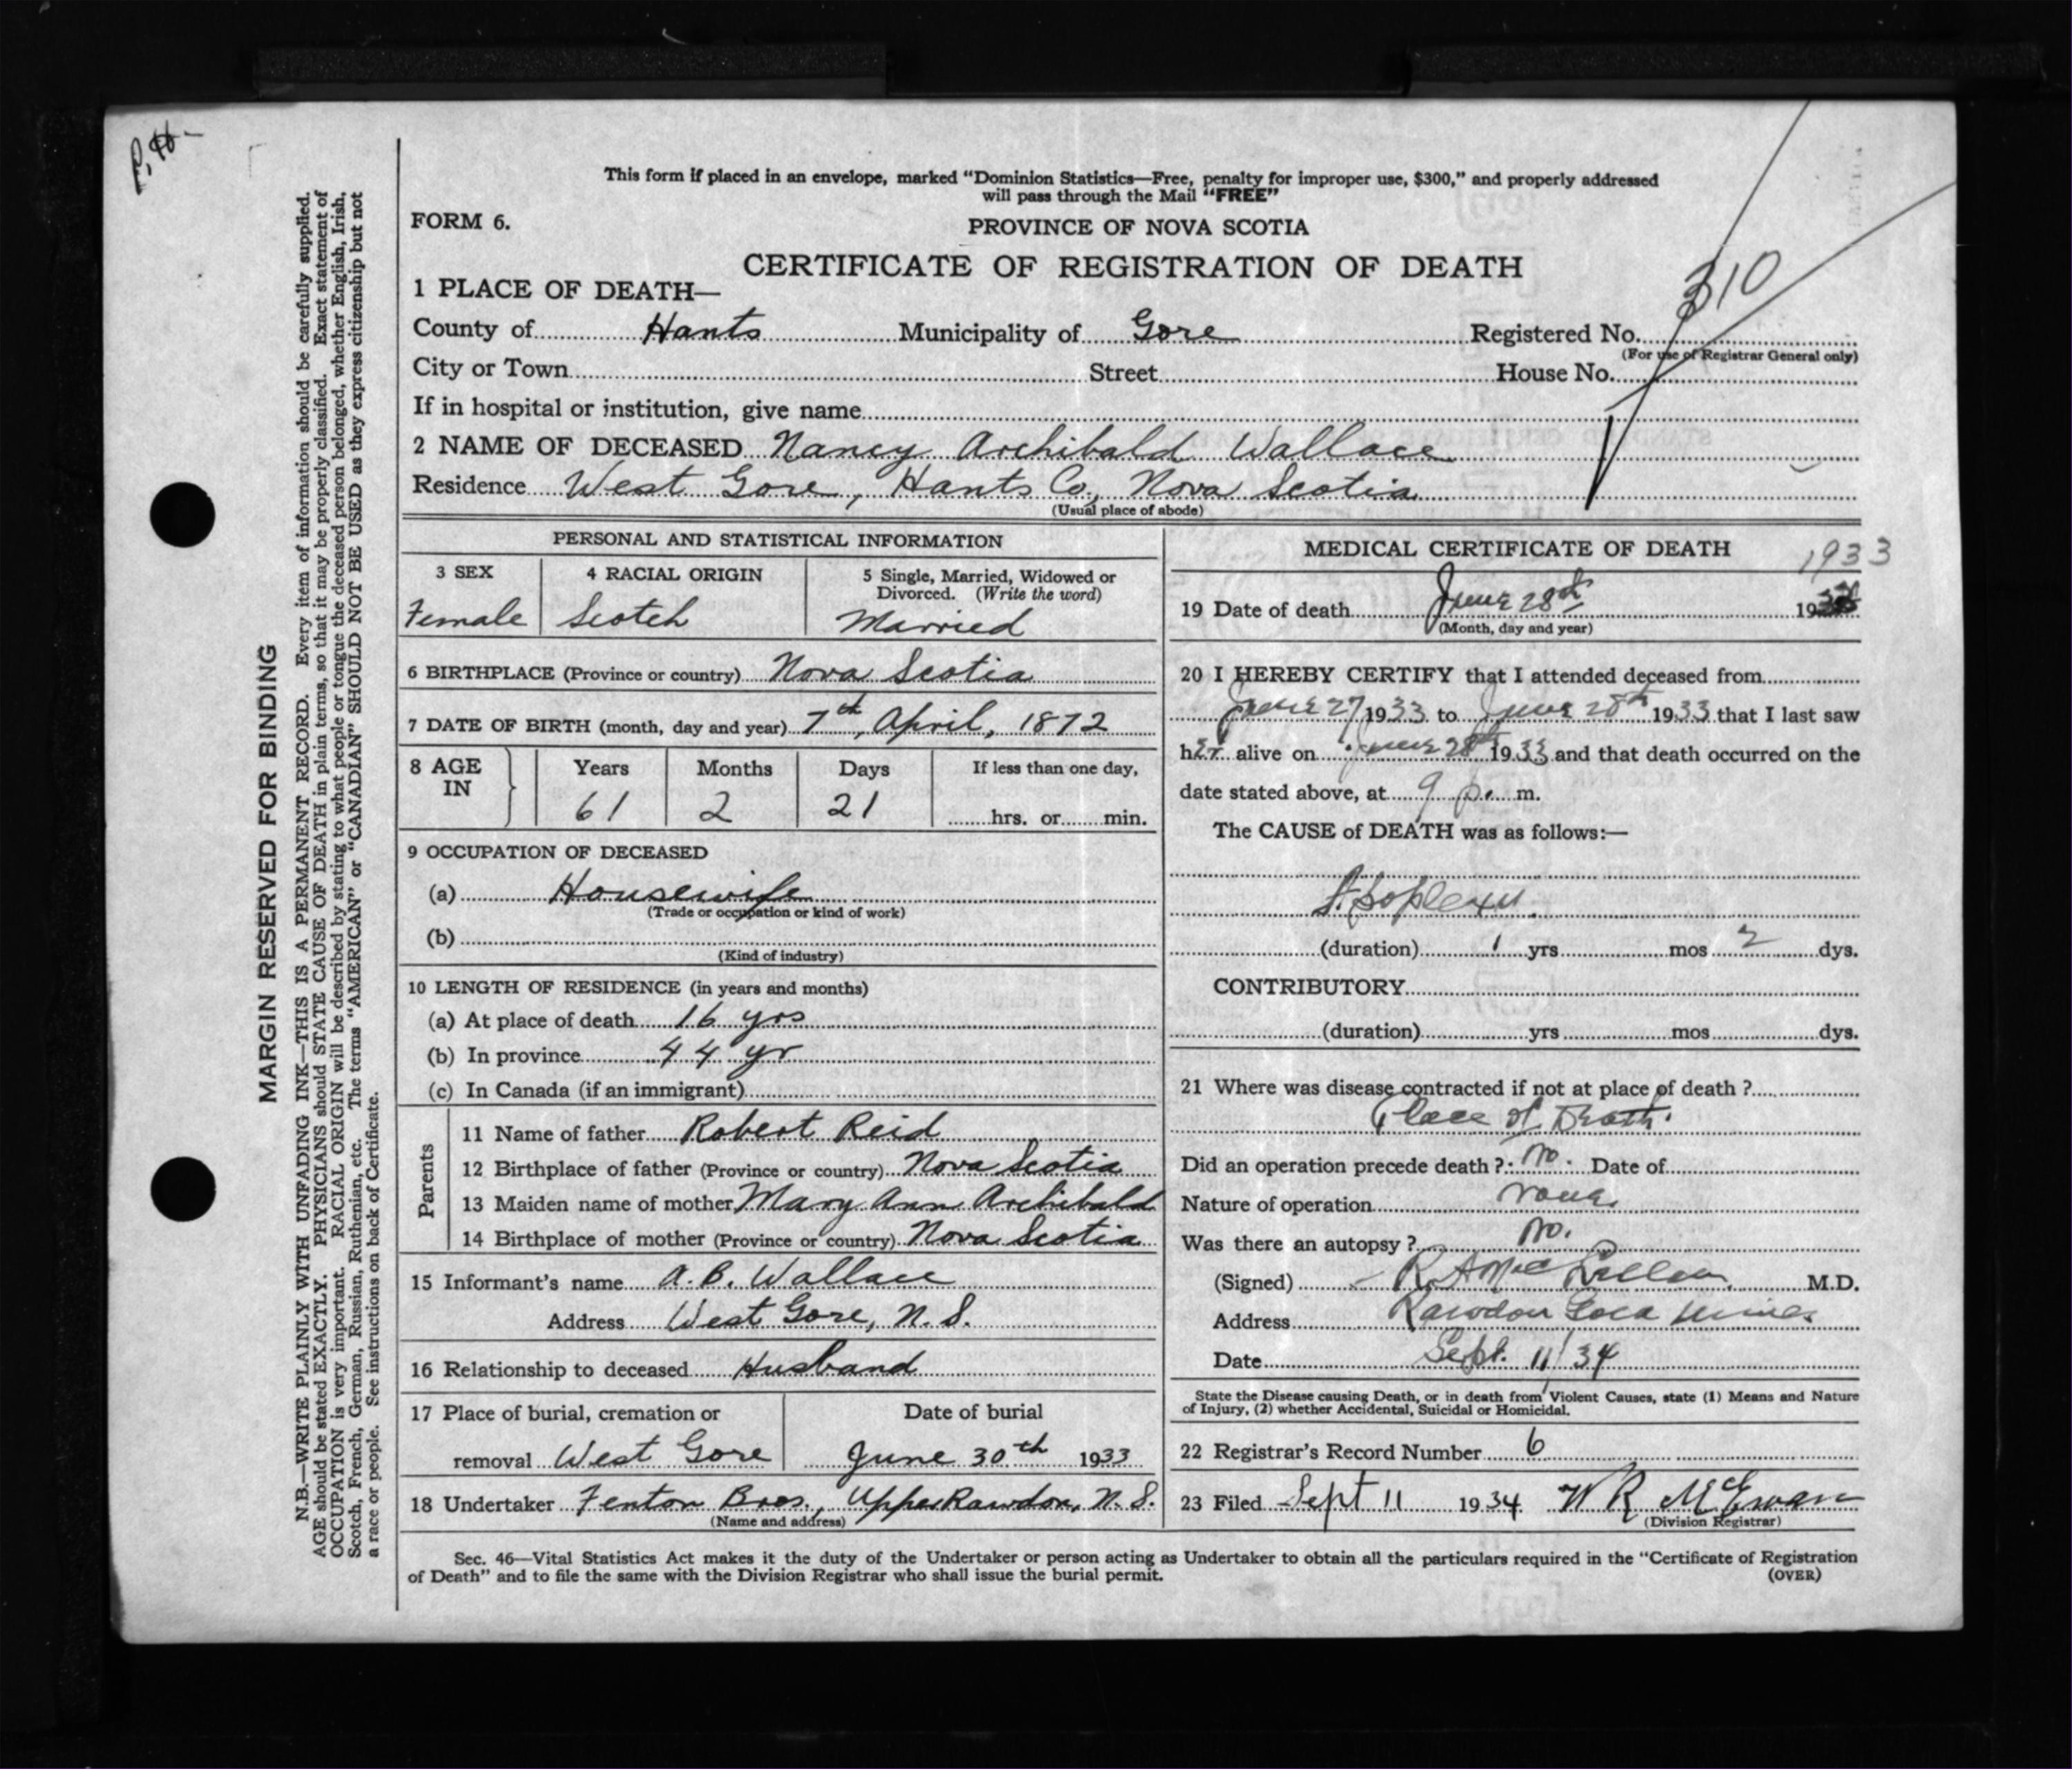 This form if placed in an envelope, marked “Dominion Statistics—Free, penalty for improper use, $300,” and properly addressed
will pass through the Mail “FREE”
FORM 6.
PROVINCE OF NOVA SCOTIA
CERTIFICATE OF REGISTRATION OF DEATH
310
1 PLACE OF DEATH—
County of Hants Municipality of Gore Registered No.
(For use of Registrar General only)
City or Town Street House No.
If in hospital or institution, give name
2 NAME OF DECEASED Nancy Archibald Wallace
Residence West Gore, Hants Co, Nova Scotia
(Usual place of abode)
PERSONAL AND STATISTICAL INFORMATION
3 SEX 4 RACIAL ORIGIN 5 Single, Married, Widowed or
Divorced. (Write the word)
Female Scotch Married
6 BIRTHPLACE (Province or country) Nova Scotia
7 DATE OF BIRTH (month, day and year) 7th, April, 1872
8 AGE IN Years Months Days If less than one day,
61 2 21 hrs. or min.
9 OCCUPATION OF DECEASED
(a) Housewife
(Trade or occupation or kind of work)
(b)
(Kind of industry)
10 LENGTH OF RESIDENCE (in years and months)
(a) At place of death 16 yrs
(b) In province 44 yr
(c) In Canada (if an immigrant)
Parents
11 Name of father Robert Reid
12 Birthplace of father (Province or country) Nova Scotia
13 Maiden name of mother Mary Ann Archibald
14 Birthplace of mother (Province or country) Nova Scotia
15 Informant's name A. B. Wallace
Address West Gore, N. S.
16 Relationship to deceased Husband
17 Place of burial, cremation or Date of burial
removal West Gore June 30th 1933
18 Undertaker Fenton Bros., Upper Rawdon, N. S.
(Name and address)
MEDICAL CERTIFICATE OF DEATH 1933
19 Date of death June 28th 19
(Month, day and year)
20 I HEREBY CERTIFY that I attended deceased from
June 27 1933 to June 28th 1933 that I last saw
her alive on June 28th 1933 and that death occurred on the
date stated above, at 9 p. m.
The CAUSE of DEATH was as follows:—
Apoplexy.
(duration) 1 yrs mos 2 dys.
CONTRIBUTORY
(duration) yrs mos dys.
21 Where was disease contracted if not at place of death ?
Place of Death.
Did an operation precede death ? No. Date of
Nature of operation none.
Was there an autopsy ? No.
(Signed) R. A. McLellan. M.D.
Address Rawdon Gold Mines
Date Sept. 11/34
State the Disease causing Death, or in death from Violent Causes, state (1) Means and Nature
of Injury, (2) whether Accidental, Suicidal or Homicidal.
22 Registrar's Record Number 6
23 Filed Sept 11 1934 W R McEwan
(Division Registrar)
Sec. 46—Vital Statistics Act makes it the duty of the Undertaker or person acting as Undertaker to obtain all the particulars required in the “Certificate of Registration
of Death” and to file the same with the Division Registrar who shall issue the burial permit.
(OVER)
MARGIN RESERVED FOR BINDING
N.B.—WRITE PLAINLY WITH UNFADING INK—THIS IS A PERMANENT RECORD. Every item of information should be carefully supplied.
AGE should be stated EXACTLY. PHYSICIANS should STATE CAUSE OF DEATH in plain terms, so that it may be properly classified. Exact statement of
OCCUPATION is very important. RACIAL ORIGIN will be described by stating to what people or tongue the deceased person belonged, whether English, Irish,
Scotch, French, German, Russian, Ruthenian, etc. The terms “AMERICAN” or “CANADIAN” SHOULD NOT BE USED as they express citizenship but not
a race or people. See instructions on back of Certificate.